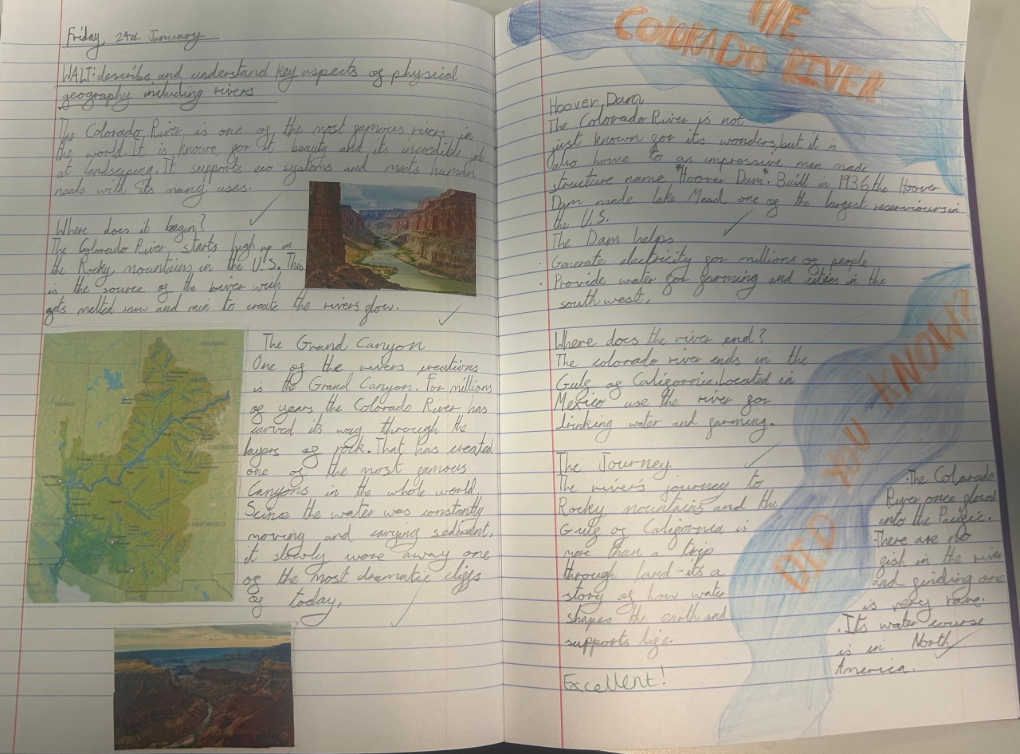 Friday, 24th January
WALT: describe and understand key aspects of physical
geography including rivers
The Colorado River is one of the most famous rivers in
the world. It is known for it beauty and its incredible job
at landscaping. It supports eco systems and meets human
needs with its many uses.
Where does it begin?
The Colorado River starts high up in
the Rocky mountains in the U.S. This
is the source of the river with
gets melted snow and rain to create the rivers flow.
The Grand Canyon
One of the rivers creations
is the Grand Canyon. For millions
of years the Colorado River has
carved its way through the
layers of rock. That has created
one of the most famous
Canyons in the whole world.
Since the water was constantly
moving and carrying sediment,
it slowly wore away one
of the most dramatic cliffs
of today.
THE
COLORADO RIVER
Hoover Dam
The Colorado River is not
just known for its wonders, but it is
also home to an impressive man made
structure name "Hoover Dam". Built in 1936 the Hoover
Dam made lake Mead one of the largest reserviours in
the U.S.
The Dam helps
· Generate electricity for millions of people
· Provide water for farming and cities in the
south west.
Where does the river end?
The colorado river ends in the
Gulf of California. Located in
Mexico use the river for
drinking water and farming.
The Journey
The river's journey to
Rocky mountains and the
Gulf of California is
more than a trip
through land - its a
story of how water
shapes the earth and
supports life
Excellent!
DID YOU KNOW?
· The Colorado
River once flowed
into the Pacific.
· There are no
fish in the river
and finding one
is very rare.
· Its water course
is in North
America.